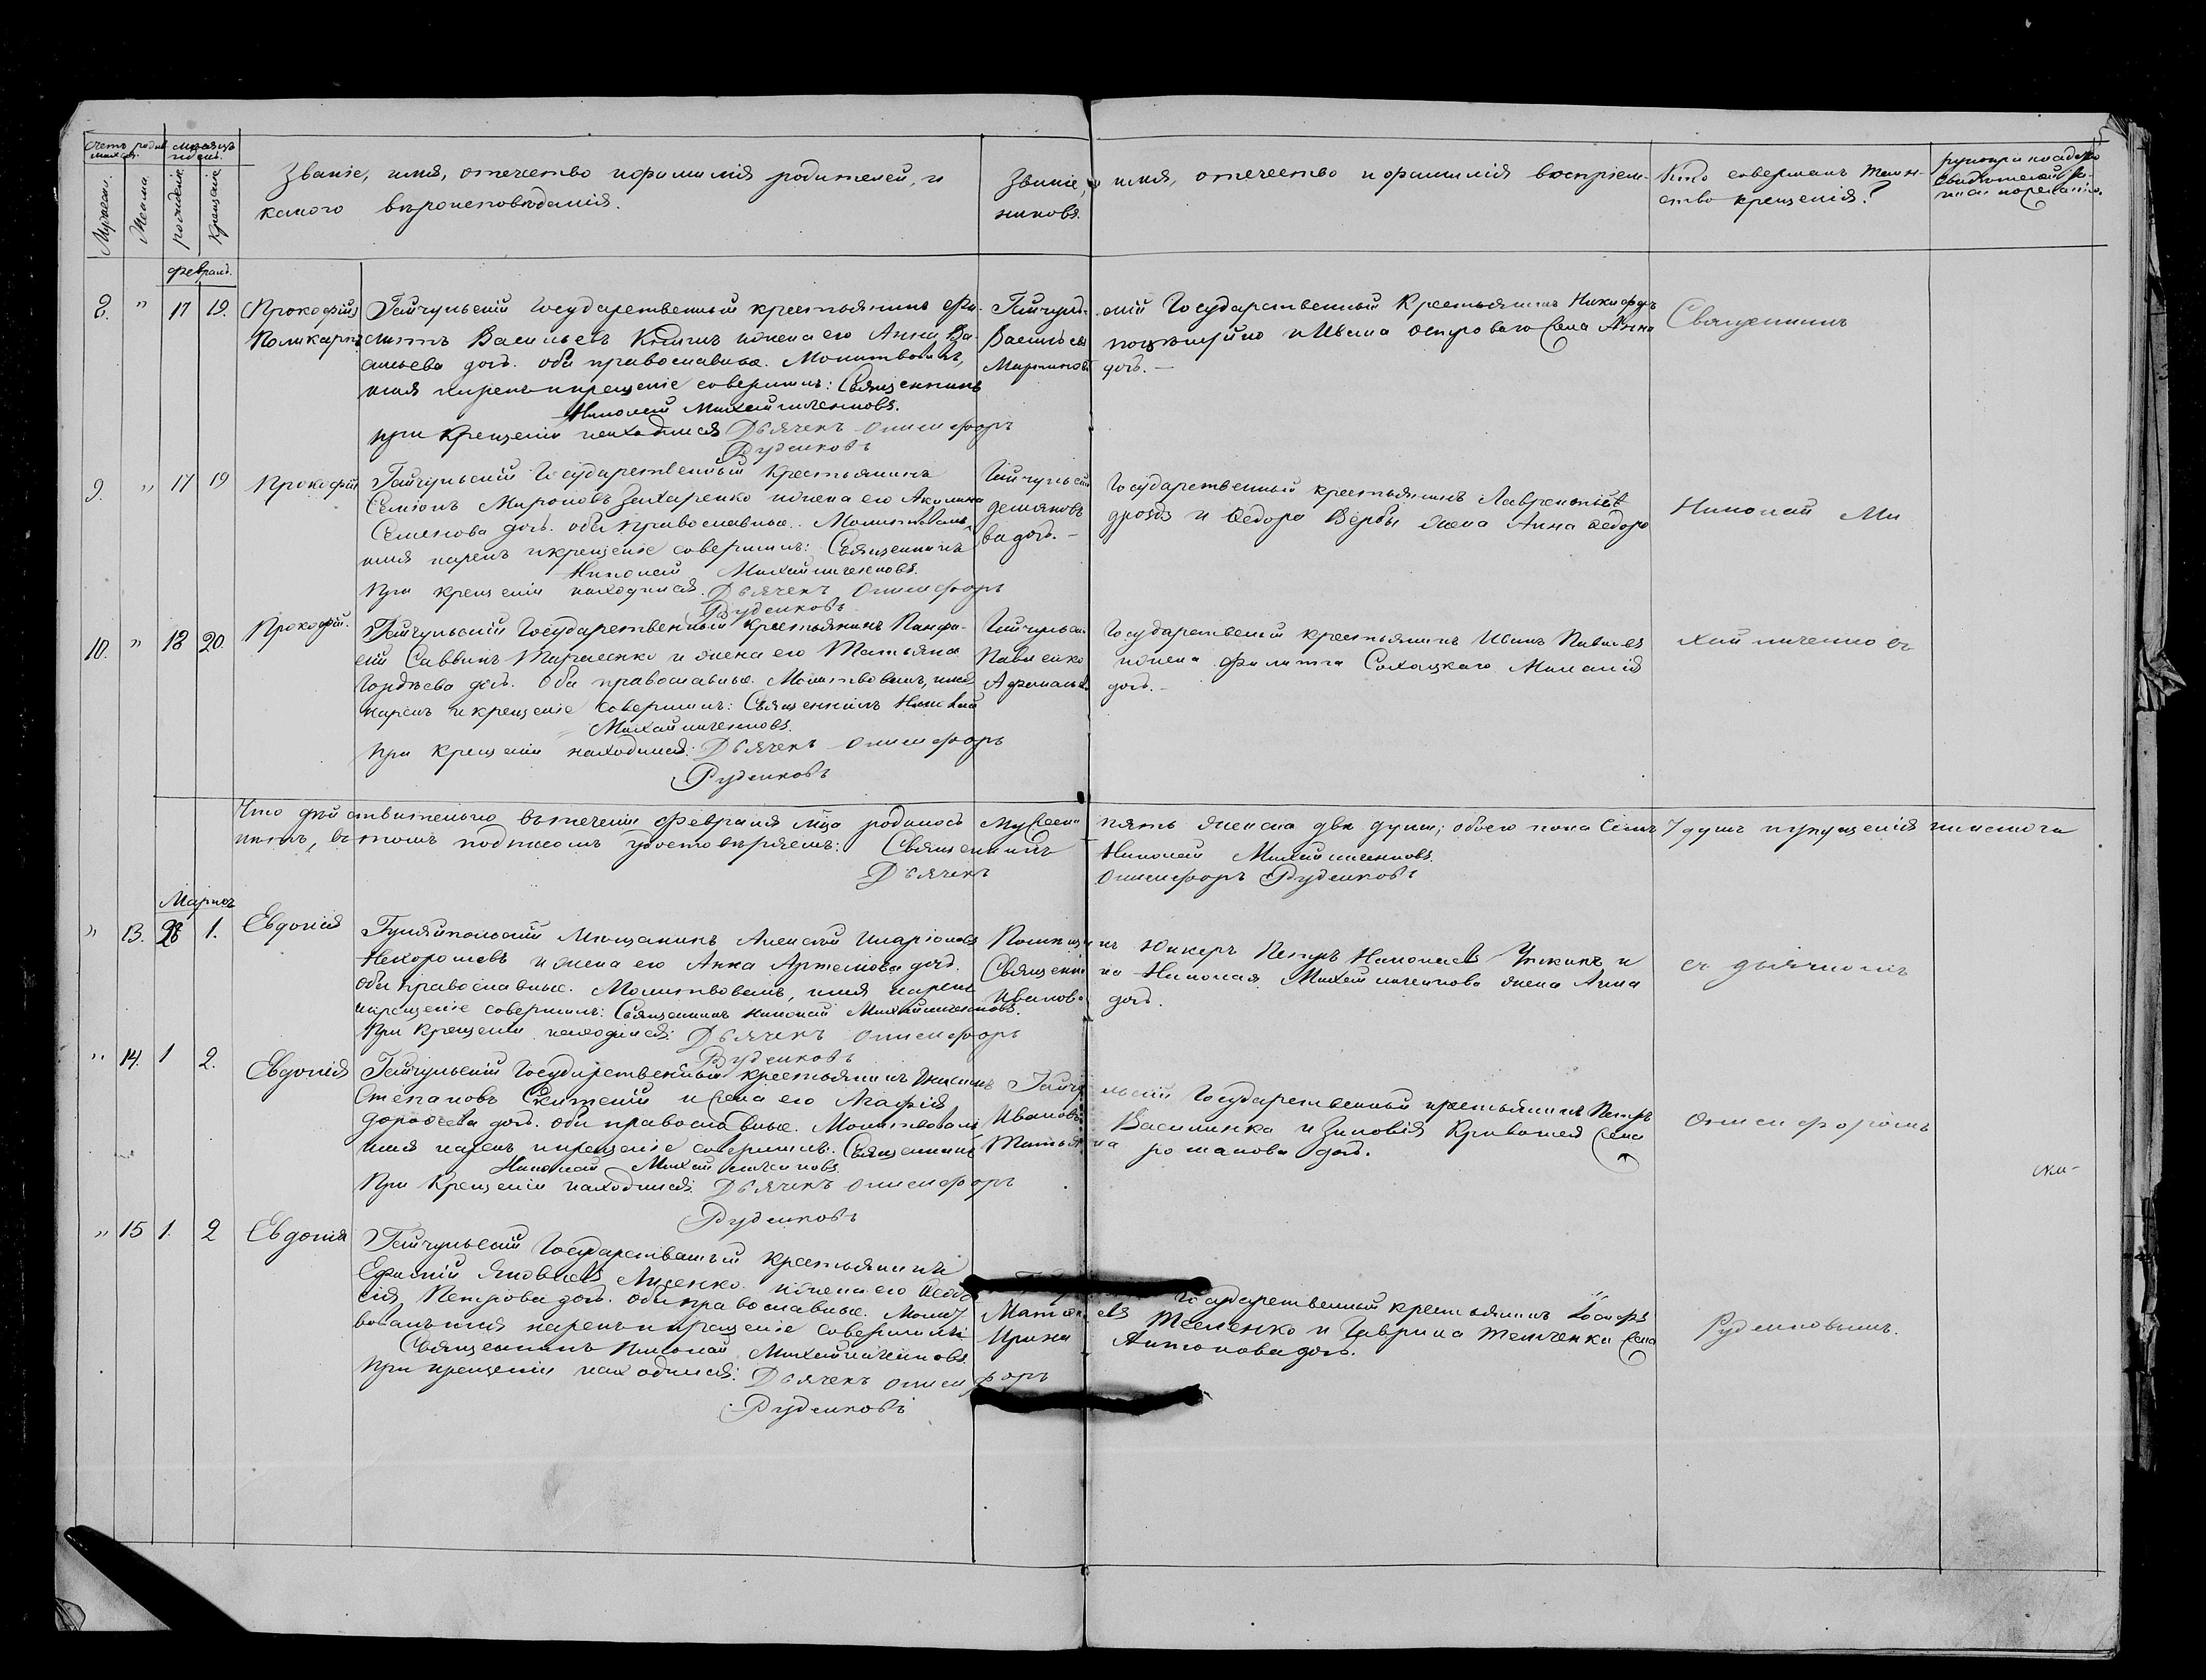 Счетъ родив
шихся.
Мѣсяцъ
и день.
Мужеск.
Женска.
рожденія
Крещенія
Званіе, имя, отечество и фамилія родителей, и
какого вѣроисповѣданія.
Званіе, имя, отечество и фамилія воспріем-
никовъ.
Кто совершалъ таин-
ство крещенія?
февраль.
8. " 17 19. Прокофій
Поликарпъ
Гайчульскій Государственный крестьянинъ Фи-
липъ Васильевъ и жена его Анна Ва-
сильева дочь. оба православные. Молитвовалъ,
имя нарекъ и крещеніе совершилъ: Священникъ
Николай Михайличенковъ.
при крещеніи находился Дьячекъ Онисифоръ
Руденковъ
Гайчульскій Государственный Крестьянинъ Никифоръ
Васильевъ и Ивана Островаго жена Анна
Мартинова дочь.—
Священникъ
9. " 17 19 Прокофій
Гайчульскій Государственный Крестьянинъ
Семіонъ Мироновъ Захаренко и жена его Акилина
Семенова дочь. оба православные. Молитвовалъ,
имя нарекъ и крещеніе совершилъ: Священникъ
Николай Михайличенковъ.
При крещеніи находился. Дьячекъ Онисифоръ
Руденковъ
Гайчульскій Государственный крестьянинъ Лаврентій
Демяновъ Дроздъ и Ѳедора Вербы жена Анна Ѳедоро
ва дочь.—
Николай Ми
10. " 18 20. Прокофій.
Гайчульскій Государственный Крестьянинъ Панфи-
лій Саввинъ и жена его Татьяна
Гордѣева дочь. Оба православные. Молитвовалъ, имя
нарекъ и крещеніе совершилъ: Священникъ Николай
Михайличенковъ.
При крещеніи находился: Дьячекъ Онисифоръ
Руденковъ
Гайчульскій Государственый крестьянинъ Иванъ Павловъ
Павленко и жена Филиппа Сохацкаго Маланія
Афанасьева дочь.—
хайличенковъ
Что дѣйствительно въ теченіи февраля мца родилось мужеска пять женска двѣ души; обоего пола семь 7 душъ
въ томъ подписомъ удостовѣряемъ: Священникъ Николай Михайличенковъ.
Дьячекъ Онисифоръ Руденковъ
Мартъ
" 13. 28 1. Евдокія
Гуляйпольскій Мещанинъ Алексій Иларіоновъ
Нехорошевъ и жена его Анна Артемова дочь.
оба православные. Молитвовалъ, имя нарекъ
и крещеніе совершилъ: Священникъ Николай Михайличенковъ.
При Крещеніи находился: Дьячекъ Онисифоръ
Руденковъ
Юнкеръ Петръ Николаевъ и
Священника Николая Михайличенкова жена Анна
Иванова дочь.
съ дьячкомъ
" 14. 1 2. Евдокія
Гайчульскій Государственный крестьянинъ
Степановъ и жена его Агафія
Дороѳеева дочь. оба православные. Молитвовалъ
имя нарекъ и крещеніе совершилъ. Священникъ
Николай Михайличенковъ.
При Крещеніи находился: Дьячекъ Онисифоръ
Руденковъ
Гайчульскій Государственный крестьянинъ Петръ
Ивановъ Василинка и Зиновія жена
Татьяна романова дочь.
Онисифоромъ
" 15 1. 2 Евдокія
Гайчульскій Государственный Крестьянинъ
Ефимій Яковлевъ Лисенко и жена его Ѳеодо
сія Петрова дочь. оба православные. Молит
вовалъ имя нарекъ и крещеніе совершилъ:
Священникъ Николай Михайличенковъ
При крещеніи находился: Дьячекъ Онисифоръ
Руденковъ
Государственный крестьянинъ Іосифъ
Матвѣевъ и Гаврила жена
Ирина Антонова дочь.
Руденковымъ.